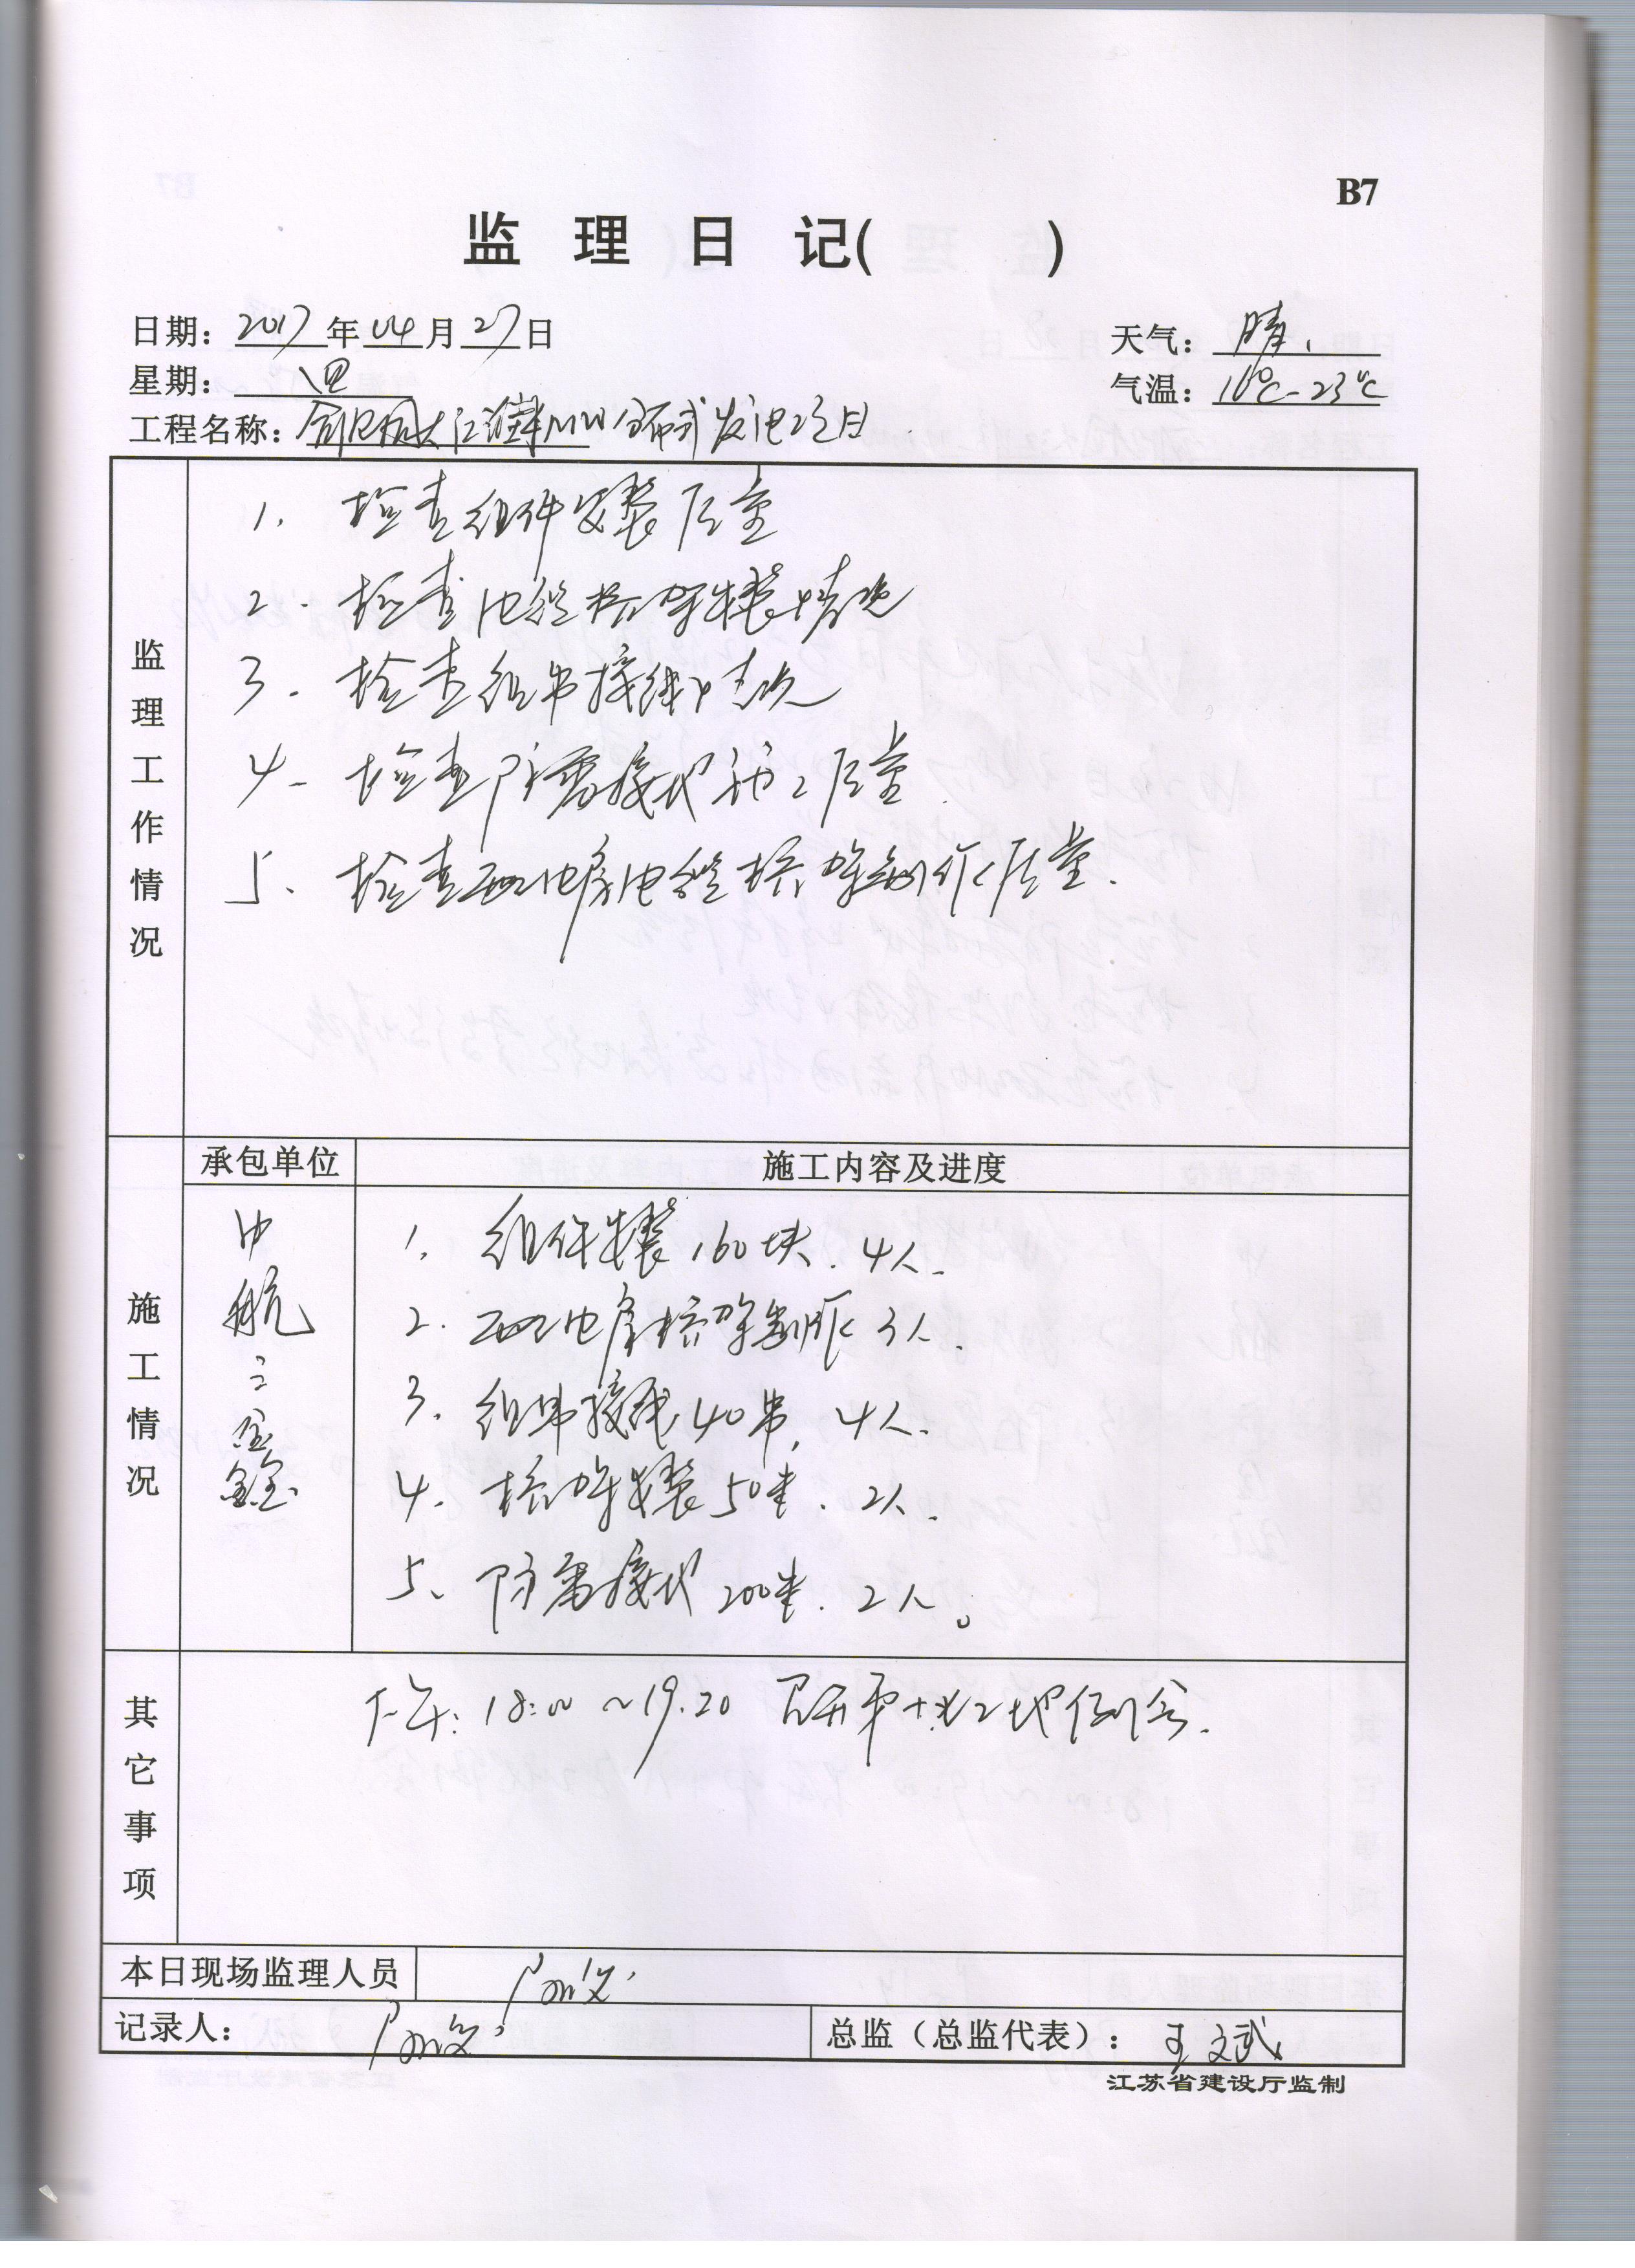 B7
监 理 日 记( )
日期: 2017 年 04 月 27 日
天气: 晴、
星期: 四
气温: 16℃-23℃
工程名称: 分布式发电项目
监理工作情况
1. 检查组件安装质量
2. 检查电缆桥架安装情况
3. 检查组串接线情况
4. 检查防雷接地施工质量.
5. 检查配电房电缆桥架制作质量.
承包单位
施工内容及进度
施工情况
中航三鑫
1. 组件安装160块. 4人.
2. 配电房桥架制作 3人.
3. 组串接线40串, 4人.
4. 桥架安装50米. 2人.
5. 防雷接地200米. 2人。
其它事项
下午: 18:00~19:20 召开第十次工地例会.
本日现场监理人员
记录人:
总监(总监代表): 王文武
江苏省建设厅监制